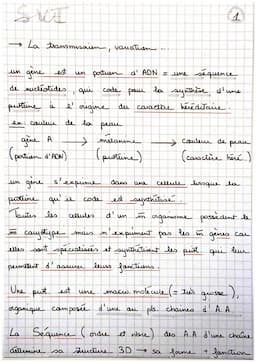 SVT
1
→ La transmission, variation ...
un gène est un portion d'ADN = une séquence
de nucléotides, qui code pour la synthèse d'une
protéine à l'origine des caractère héréditaire.
ex: couleur de la peau
gène A → mélanine → couleur de peau
(portion d'ADN) (protéine) (caractère héré.)
un gène s'exprime dans une cellule lorsque la
protéine qu'il code est synthétisé.
Toutes les cellules d'un m̄ organisme possèdent le
m̄ caryotype mais n'expriment pas les m̄ gènes car
elles sont spécialisées et synthétisent les prot que leur
permettent d'assurer leurs fonctions.
Une prot est une macromolécule (= très grosse),
organique composée d'une ou pls chaines d'A.A
La Séquence (ordre et nbre) des A.A d'une chaîne
détermine sa structure 3D → sa forme → fonction